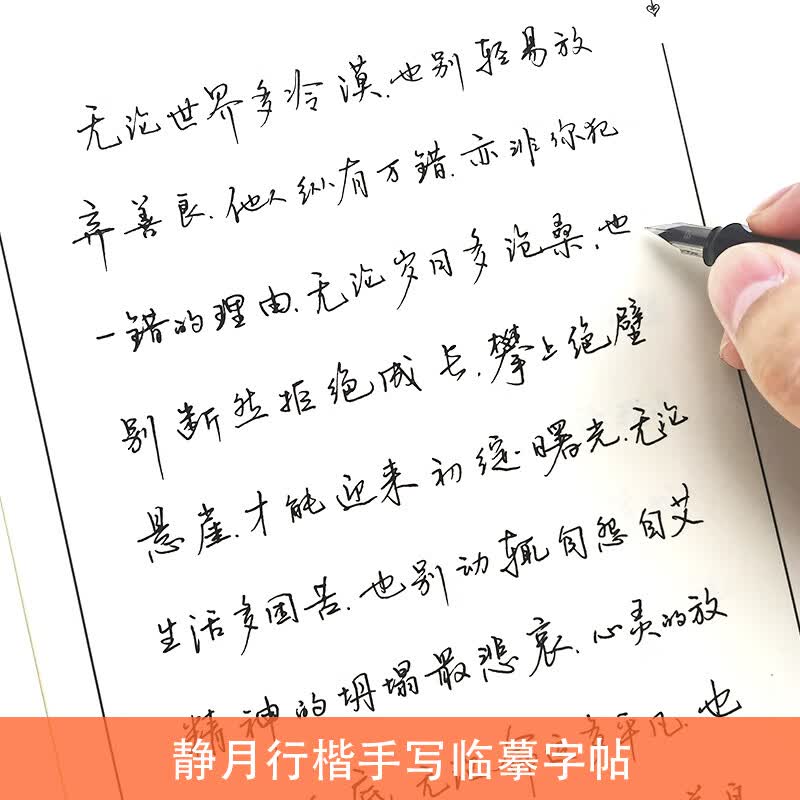 无论世界多冷漠.也别轻易放
弃善良.他人纵有万错.亦非你犯
一错的理由.无论岁月多沧桑.也
别断然拒绝成长.攀上绝壁
悬崖.才能迎来初绽曙光.无论
生活多困苦.也别动辄自怨自艾
精神的坍塌最悲哀.心灵的放
底.无论 平凡.也
静月行楷手写临摹字帖